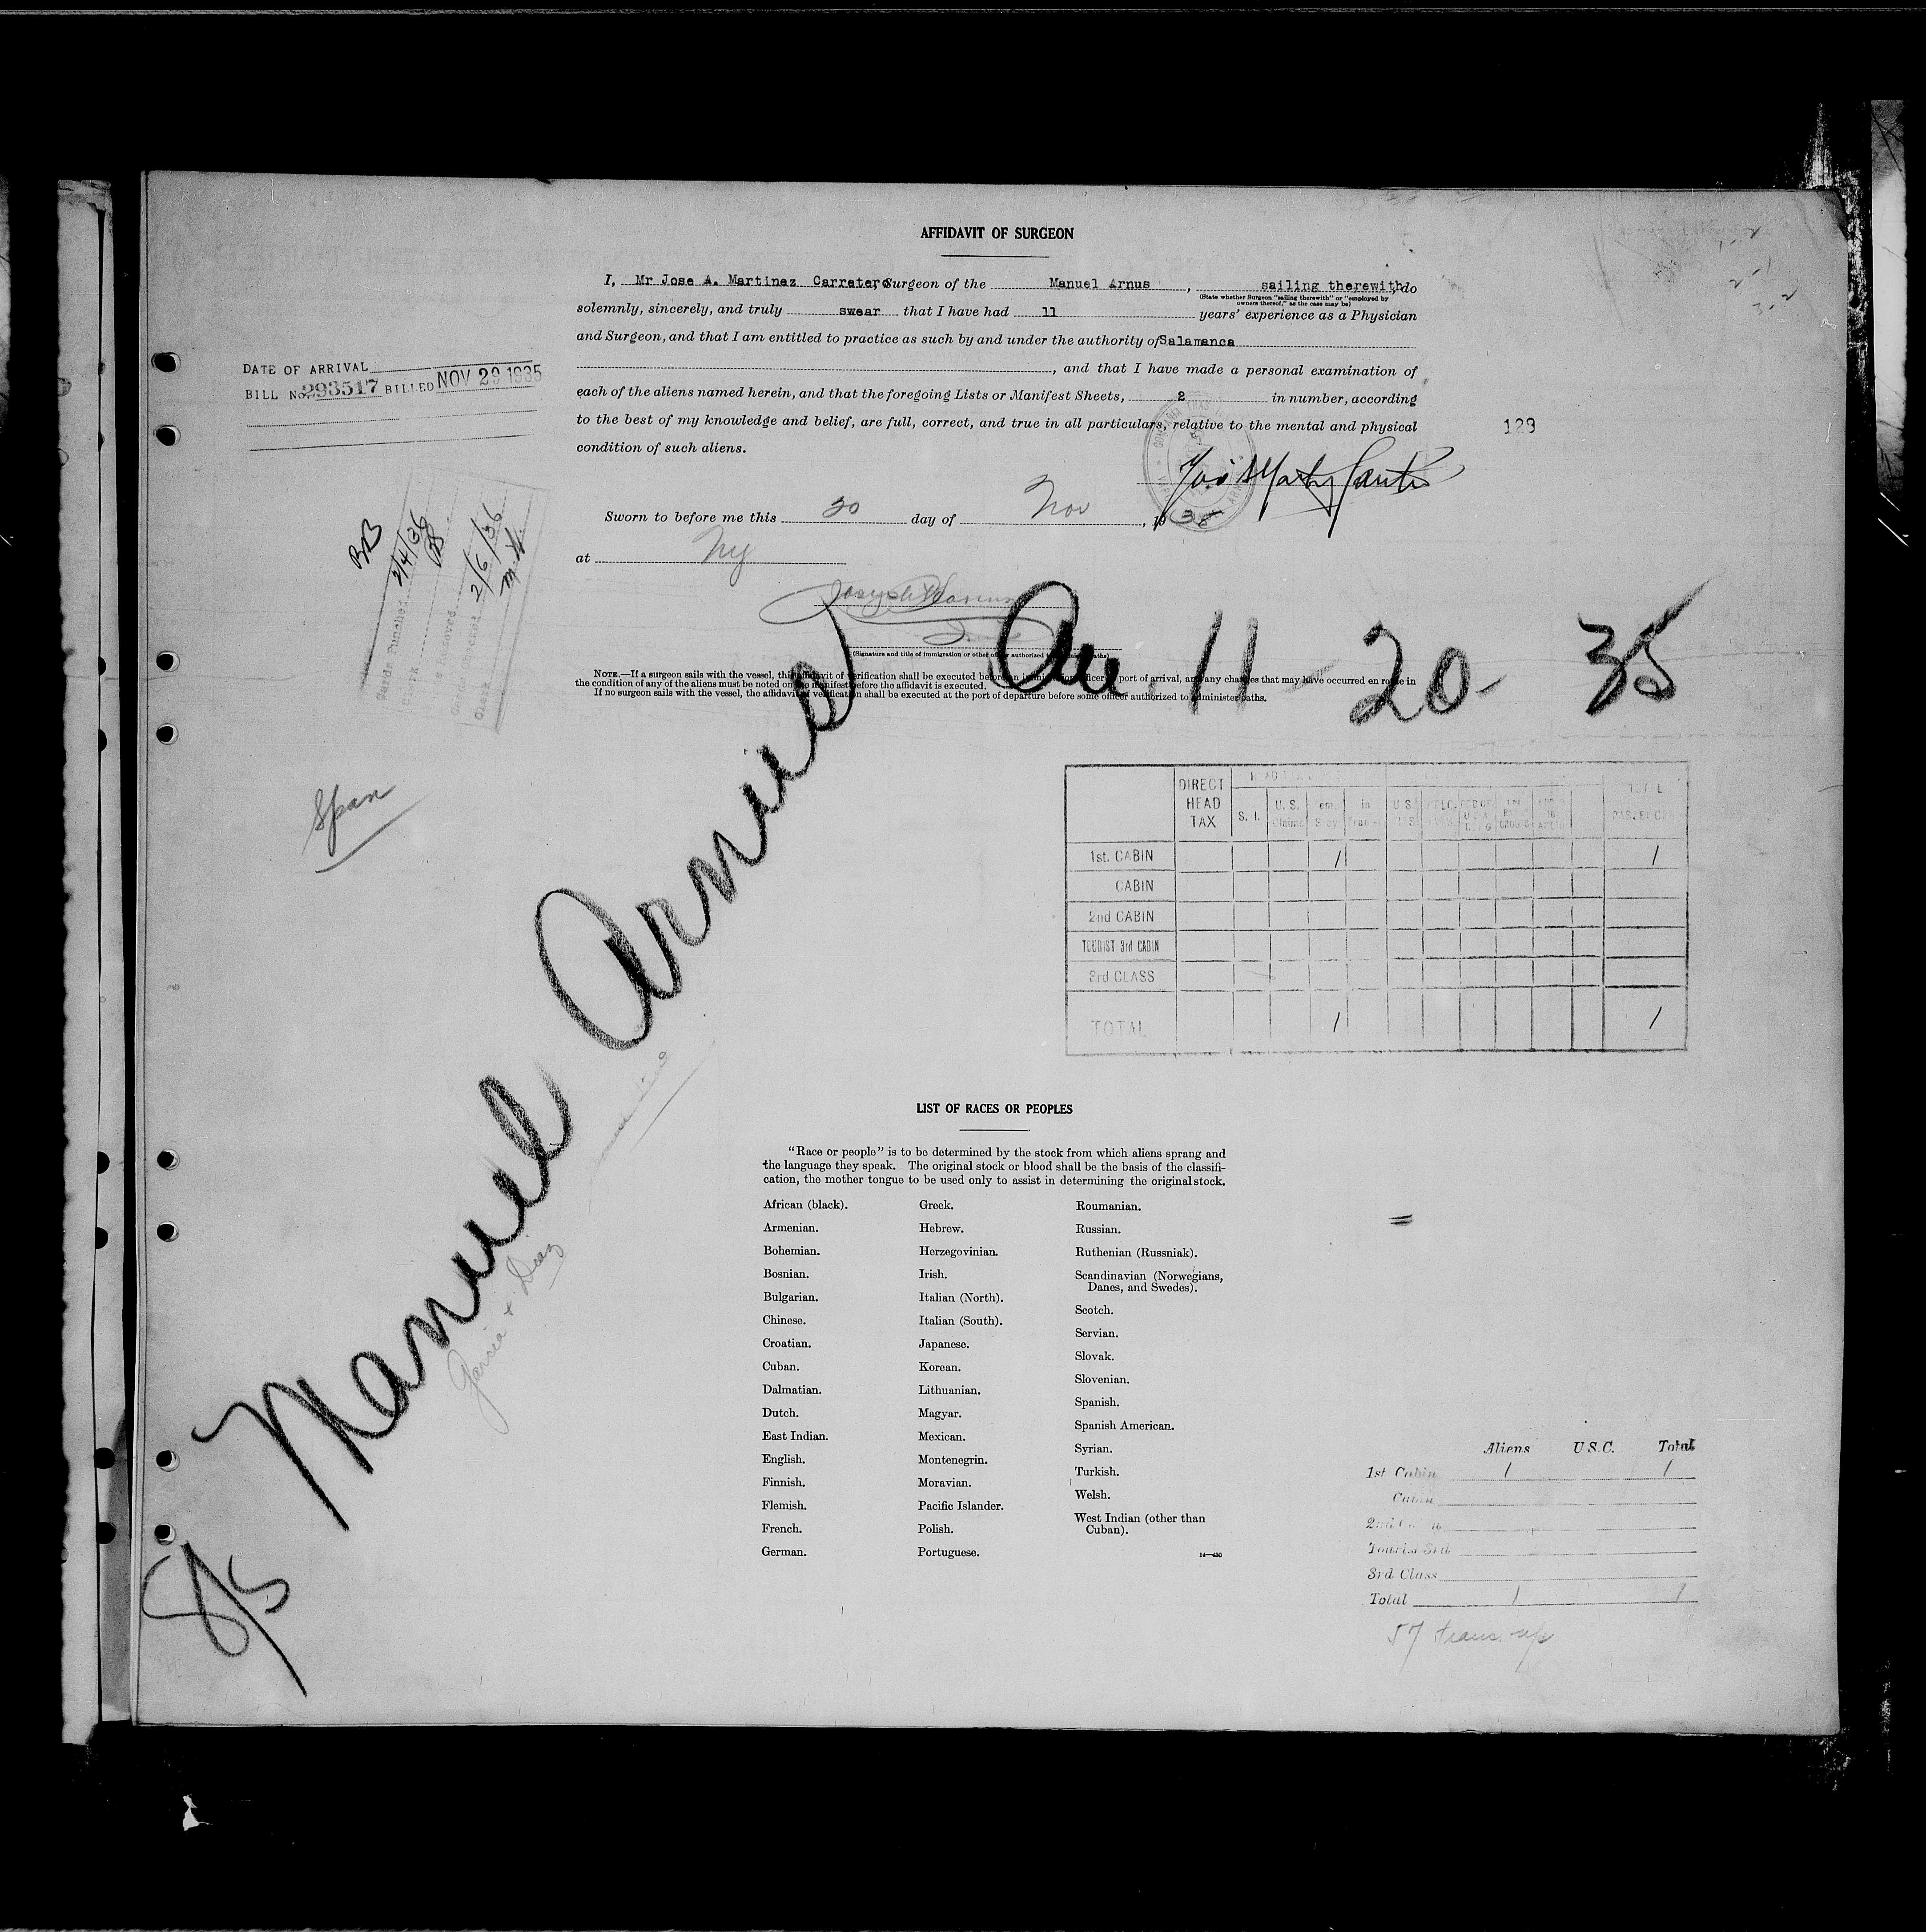 AFFIDAVIT OF SURGEON
I, Mr Jose A. Martinez Carretero, Surgeon of the Manuel Arnus, sailing therewith, do
(State whether Surgeon "sailing therewith" or "employed by
owners thereof," as the case may be)
solemnly, sincerely, and truly swear that I have had 11 years' experience as a Physician
and Surgeon, and that I am entitled to practice as such by and under the authority of Salamanca
, and that I have made a personal examination of
each of the aliens named herein, and that the foregoing Lists or Manifest Sheets, 2 in number, according
to the best of my knowledge and belief, are full, correct, and true in all particulars, relative to the mental and physical
condition of such aliens.
DATE OF ARRIVAL
BILL No. 293517 BILLED NOV 29 1935
129
Sworn to before me this 20 day of Nov, 1935
at NY
(Signature and title of immigration or other officer authorized to administer oaths)
NOTE.—If a surgeon sails with the vessel, this affidavit of verification shall be executed before an immigration officer at port of arrival, and any changes that may have occurred en route in
the condition of any of the aliens must be noted on the manifest before the affidavit is executed.
If no surgeon sails with the vessel, the affidavit of verification shall be executed at the port of departure before some officer authorized to administer oaths.
BB
Cards Punched 2/4/36
2/6/36
Arr. 11-20-35
Span
S/S Manuel Arnus
Garcia & Diaz
DIRECT HEAD TAX
S. I.
U. S. Claims
1st. CABIN 1 1
CABIN
2nd CABIN
TOURIST 3rd CABIN
3rd CLASS
TOTAL 1 1
LIST OF RACES OR PEOPLES
"Race or people" is to be determined by the stock from which aliens sprang and
the language they speak. The original stock or blood shall be the basis of the classifi-
cation, the mother tongue to be used only to assist in determining the original stock.
African (black).
Armenian.
Bohemian.
Bosnian.
Bulgarian.
Chinese.
Croatian.
Cuban.
Dalmatian.
Dutch.
East Indian.
English.
Finnish.
Flemish.
French.
German.
Greek.
Hebrew.
Herzegovinian.
Irish.
Italian (North).
Italian (South).
Japanese.
Korean.
Lithuanian.
Magyar.
Mexican.
Montenegrin.
Moravian.
Pacific Islander.
Polish.
Portuguese.
Roumanian.
Russian.
Ruthenian (Russniak).
Scandinavian (Norwegians,
Danes, and Swedes).
Scotch.
Servian.
Slovak.
Slovenian.
Spanish.
Spanish American.
Syrian.
Turkish.
Welsh.
West Indian (other than
Cuban).
14—430
Aliens U.S.C. Total
1st Cabin 1 1
Cabin
2nd Cabin
Tourist 3rd
3rd Class
Total 1 1
57 trans.